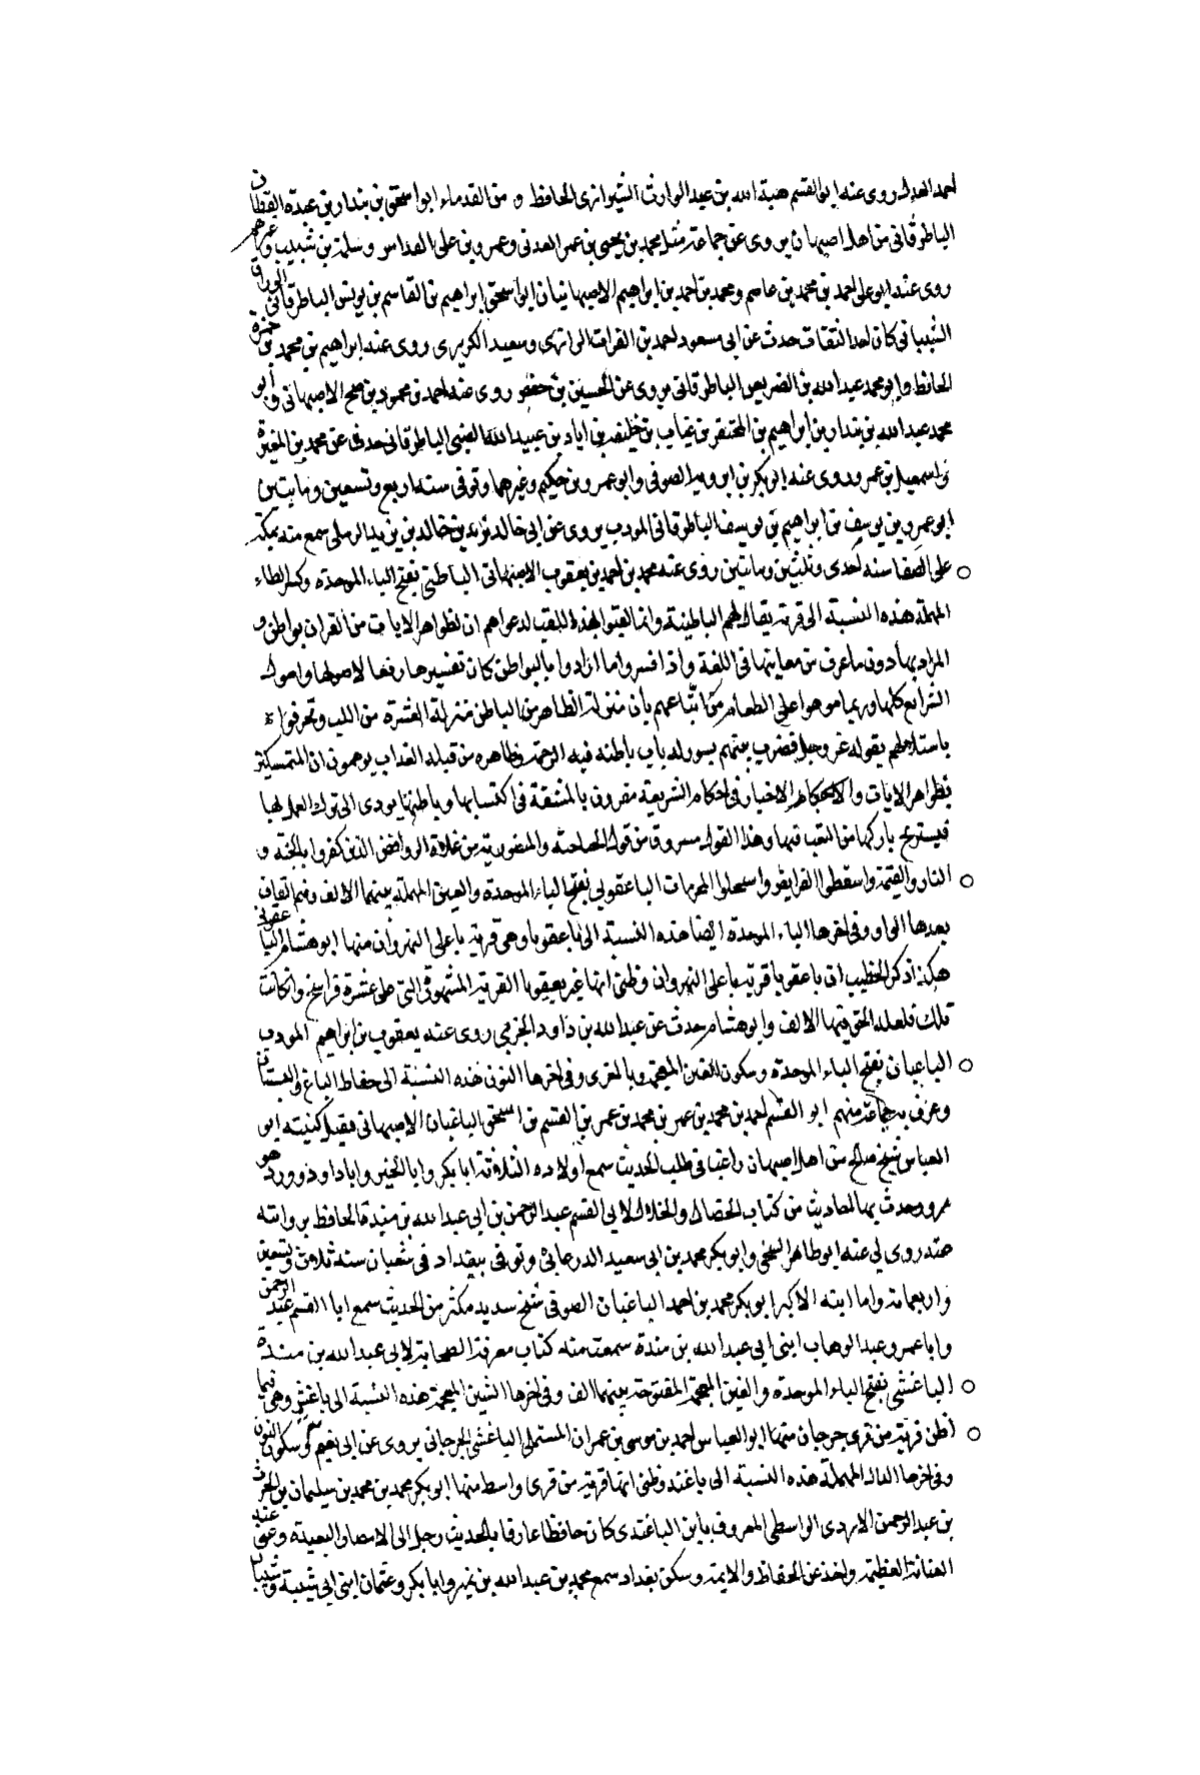 احمد العدل روى عنه ابو القسم هبة الله بن عبد الوارث الشيرازى الحافظ و من القدماء ابو اسحق بن بندار بن عبدة القطان
الباطرقانى من اهل اصبهان يروى عن جماعة مثل محمد بن يحيى بن عمر العدنى وعمرو بن على الفلاس وسلمة بن شبيب وغيرهم
روى عنه ابو على احمد بن محمد بن عاصم ومحمد بن احمد بن ابراهيم الاصبهانيان ابو اسحق ابراهيم بن القاسم بن يونس الباطرقانى الوراق
الشيبانى كان احد الثقات حدث عن ابى مسعود احمد بن الفرات الرازى وسعيد الكريزى روى عنه ابراهيم بن محمد بن حمزة
الحافظ وابو محمد عبد الله بن الضريس الباطرقانى يروى عن الحسين بن حفص روى عنه احمد بن محمود بن صبح الاصبهانى وابو
محمد عبد الله بن بندار بن ابراهيم بن المحتضر بن عتاب بن خليفة بن اياد بن عبيد الله الضبى الباطرقانى حدث عن محمد بن المغيرة
واسمعيل بن عمرو روى عنه ابو بكر بن الصوفى وابو عمرو بن حكيم وغيرهما وتوفى سنة اربع وتسعين ومايتين
ابو عمرو بن يوسف بن ابراهيم بن يوسف الباطرقانى المودب يروى عن ابى خالد يزيد بن خالد بن يزيد الرملى سمع منه بمكة
على الصفا سنه احدى وثلثين ومايتين روى عنه محمد بن احمد بن يعقوب الاصبهانى الباطنى بفتح الباء الموحدة وكسر الطاء
المهملة هذه النسبة الى فرقة يقال لهم الباطنية وانما لقبوا بهذه اللقب لدعواهم ان لظواهر الايات من القران بواطن و
المراد بها دون ما عرف من معانيها فى اللغة واذا فسروا ما ارادوا بالبواطن كان تفسيرها رفعا لاصولها واصول
الشرايع كلها وربما موهوا على الطغام من اتباعهم بان منزلة الظاهر من الباطن منزلة القشرة من اللب وتحرفوا
باستدلالهم بقوله عز وجل فضرب بينهم بسور له باب باطنه فيه الرحمة وظاهره من قبله العذاب يوهمون ان المتمسكين
بظواهر الايات والاحكام والاخبار فى احكام الشريعة مقرون بالمشقة فى اكتسابها وباطنها يودى الى ترك العمل بها
فيستريح تاركها من التعب فيها وهذا القول مسروق من قول الجناحية والمنصورية من غلاة الروافض الذين كفروا بالجنة و
النار والقيمة واسقطوا الفرايض واستحلوا المحرمات الباعقوبى بفتح الباء الموحدة والعين المهملة بينهما الالف وضم القاف
بعدها الواو وفى اخرها الباء الموحدة ايضا هذه النسبة الى باعقوبا وهى قرية باعلى النهروان منها ابو هشام الباعقوبى
هكذا ذكر الخطيب ان باعقوبا قرية باعلى النهروان وظنى انها غير بعقوبا القرية المشهوة التى على عشرة فراسخ وان كانت
تلك فلعله الحق فيها الالف وابو هشام حدث عن عبد الله بن داود الخريبى روى عنه يعقوب بن ابراهيم المودب
الباغبان بفتح الباء الموحدة وسكون الغين المعجمة وبالغرى وفى اخرها النون هذه النسبة الى حفاظ الباغ والبستان
وعرف به جماعة منهم ابو القسم احمد بن محمد بن عمر بن محمد بن عمر بن القسم بن اسحق الباغبان الاصبهانى فقيل كنيته ابو
العباس شيخ صالح من اهل اصبهان راغبا فى طلب الحديث سمع اولاده الثلاثة ابا بكر وابا الخير وابا داود وورد هو
مرو وحدث بها احاديث من كتاب الخصال والخلال لابى القسم عبد الرحمن بن ابى عبد الله بن مندة الحافظ بروايته
عنه روى لى عنه ابو طاهر السنجى وابو بكر محمد بن ابى سعيد الدرعانى وتوفى ببغداد فى شعبان سنه ثلاث وتسعين
واربعماية واما ابنه الاكبر ابو بكر محمد بن احمد الباغبان الصوفى شيخ سديد مكثر من الحديث سمع ابا القسم عبد الرحمن
وابا عمرو عبد الوهاب ابنى ابى عبد الله بن مندة سمعت منه كتاب معرفة الصحابة لابى عبد الله بن مندة
الباغشى بفتح الباء الموحدة والغين المعجمة المفتوحة بينهما الف وفى اخرها الشين المعجمة هذه النسبة الى باغش وهى فيما
اظن قرية من قرى جرجان منها ابو العباس احمد بن موسى بن عمران المستملى الباغشى الجرجانى يروى عن ابى نعيم وسكون النون
وفى اخرها الدال المهملة هذه النسبة الى باغند وظنى انها قرية من قرى واسط منها ابو بكر محمد بن محمد بن سليمان بن الحرث
بن عبد الرحمن الازدى الواسطى المعروف بابن الباغندى كان حافظا عارفا بالحديث رحل الى الامصار البعيدة وعنى عنه
العناية العظيمة واخذ عن الحفاظ والايمة وسكن بغداد سمع محمد بن عبد الله بن نمير وابا بكر وعثمان ابنى ابى شيبة وشيبان